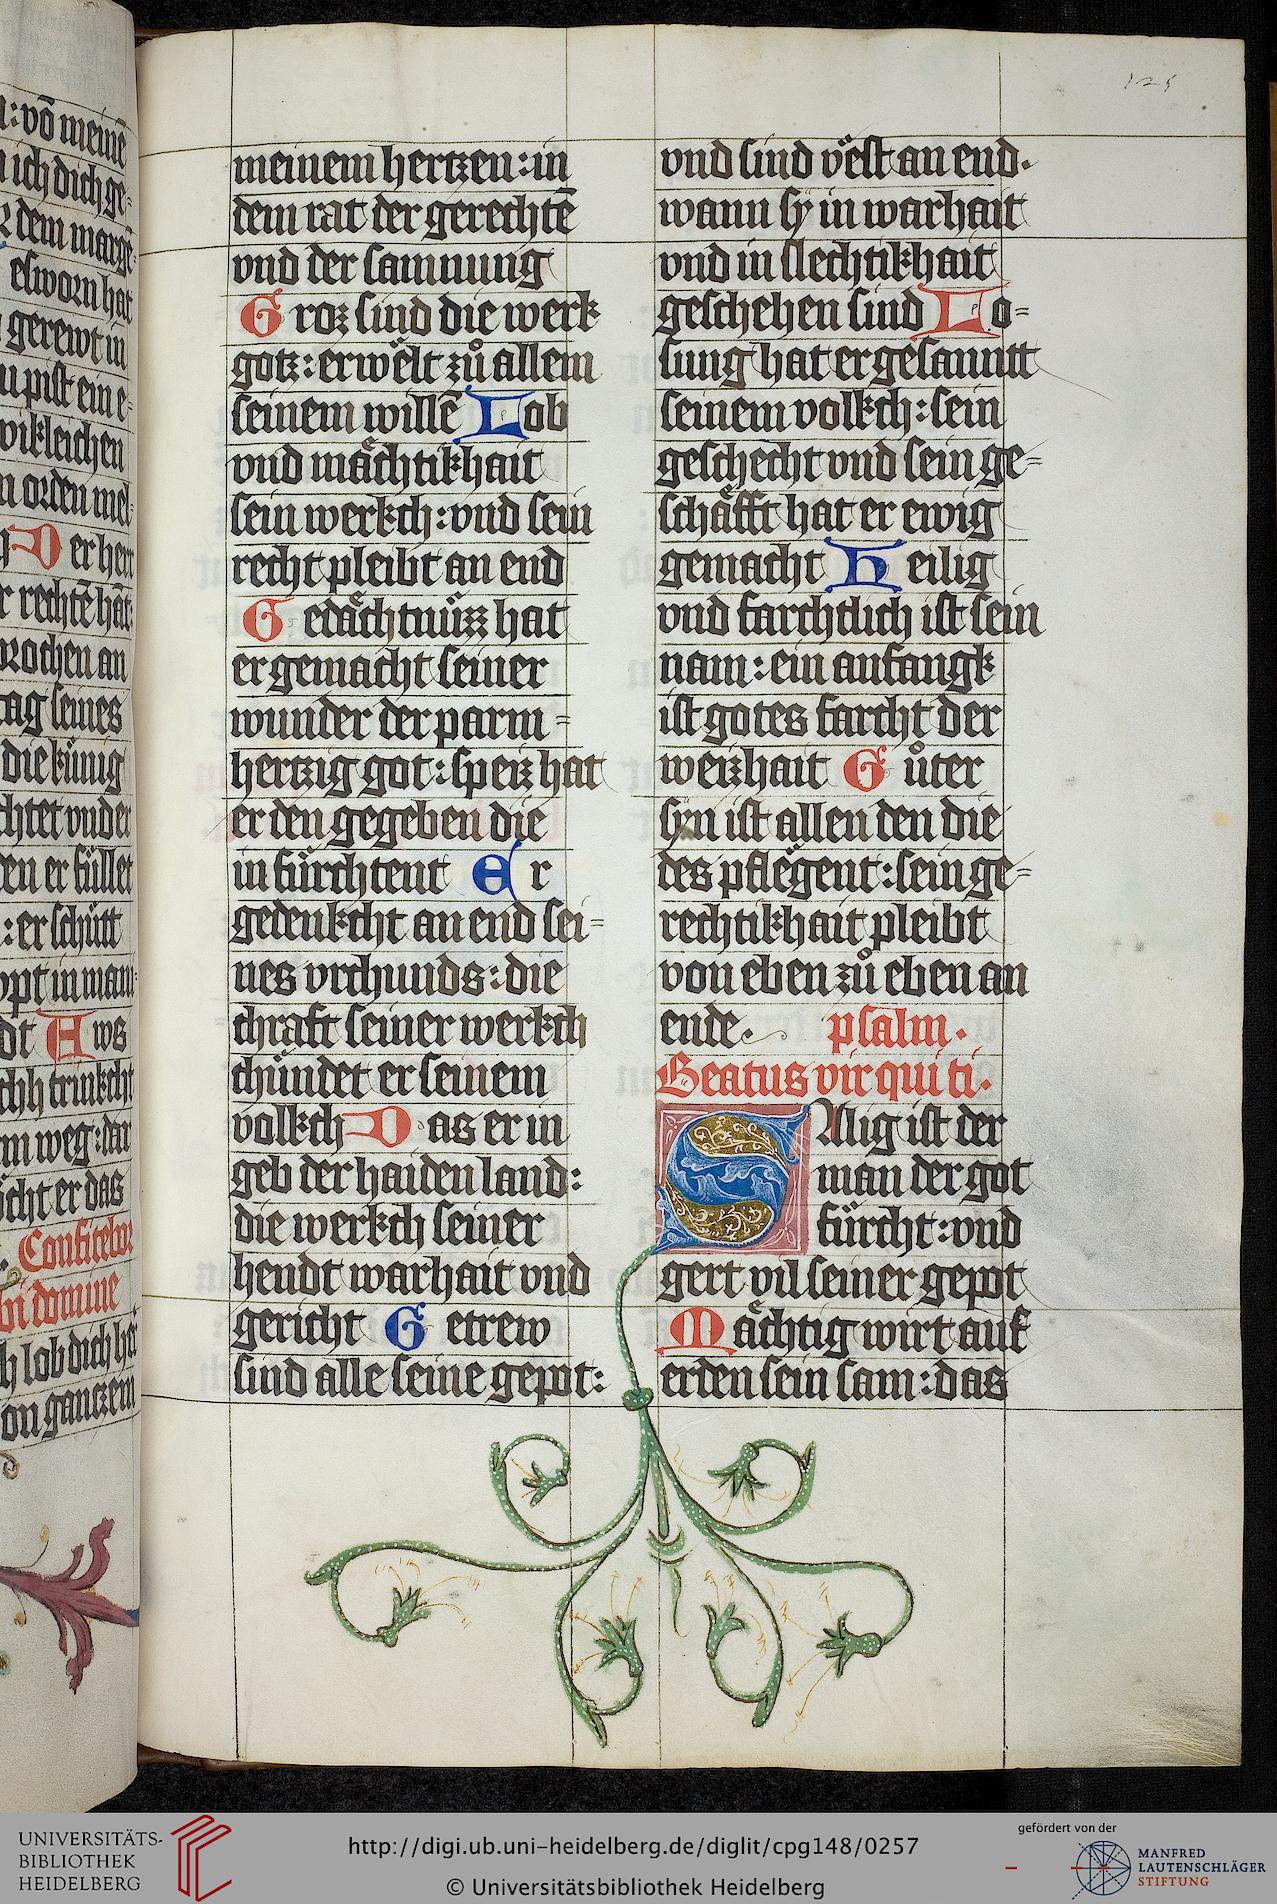 : vō meinē
ich dich ge-
dem margē
esworn hat
gerewt in
u pist ein e-
wikleichen
n orden mel
Der herr
r rechtē hāt
prochen an
tag seines
die künig
chtet vnder
en er füllet
: er schütt
opt in mani-
dt Aws
chh trinkcht
m weg : dar
öcht er das
Confitebor
bi domine
h lob dich her
on ganczem
125
meinem hertzen : in
dem rat der gerechtē
vnd der samnung
Groz sind die werk
gotz : erwelt zů allem
seinem willē Lob
vnd mächtikhait
sein werkch : vnd sein
recht pleibt an end
Gedächtnüzz hat
er gemacht seiner
wunder der parm=
hertzig got : speiz hat
er den gegeben die
in fürchtent Er
gedenkcht an end sei=
nes vrchunds : die
chraft seiner werkch
chündet er seinem
volkch Das er in
geb der haiden land :
die werkch seiner
hendt warhait vnd
gericht Getrew
sind alle seine gepot :
vnd sind vëst an end.
wann sÿ in warhait
vnd in slechtikhait
geschehen sind Lo=
sung hat er gesanntt
seinem volkch : sein
geschecht vnd sein ge=
schäfft hat er ewig
gemacht Heilig
vnd farchtlich ist sein
nam : ein anfangk
ist gotes farcht der
weizhait Gůter
syn ist allen den die
des pflëgent : sein ge=
rechtikhait pleibt
von eben zů eben an
ende. psalm.
Beatus vir qui ti.
SAlig ist der
man der got
fürcht : vnd
gert vil seiner gepot
Mächtig wirt auf
erden sein sam : das
UNIVERSITÄTS-
BIBLIOTHEK
HEIDELBERG
http://digi.ub.uni-heidelberg.de/diglit/cpg148/0257
© Universitätsbibliothek Heidelberg
gefördert von der
MANFRED
LAUTENSCHLÄGER
STIFTUNG